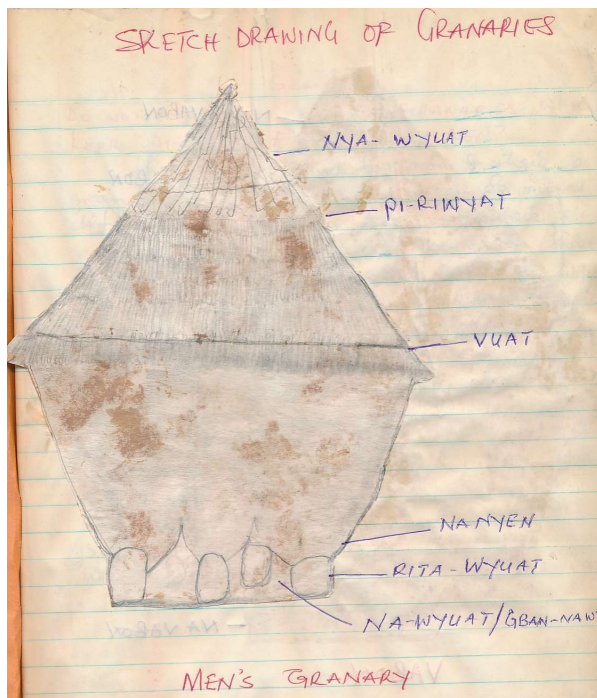 SKETCH DRAWING OF GRANARIES
NYA-WYUAT
PI-RIWYAT
VUAT
NANYEN
RITA-WYUAT
NA-WYUAT/GBAN-NAW
- NAVABON
MEN'S GRANARY